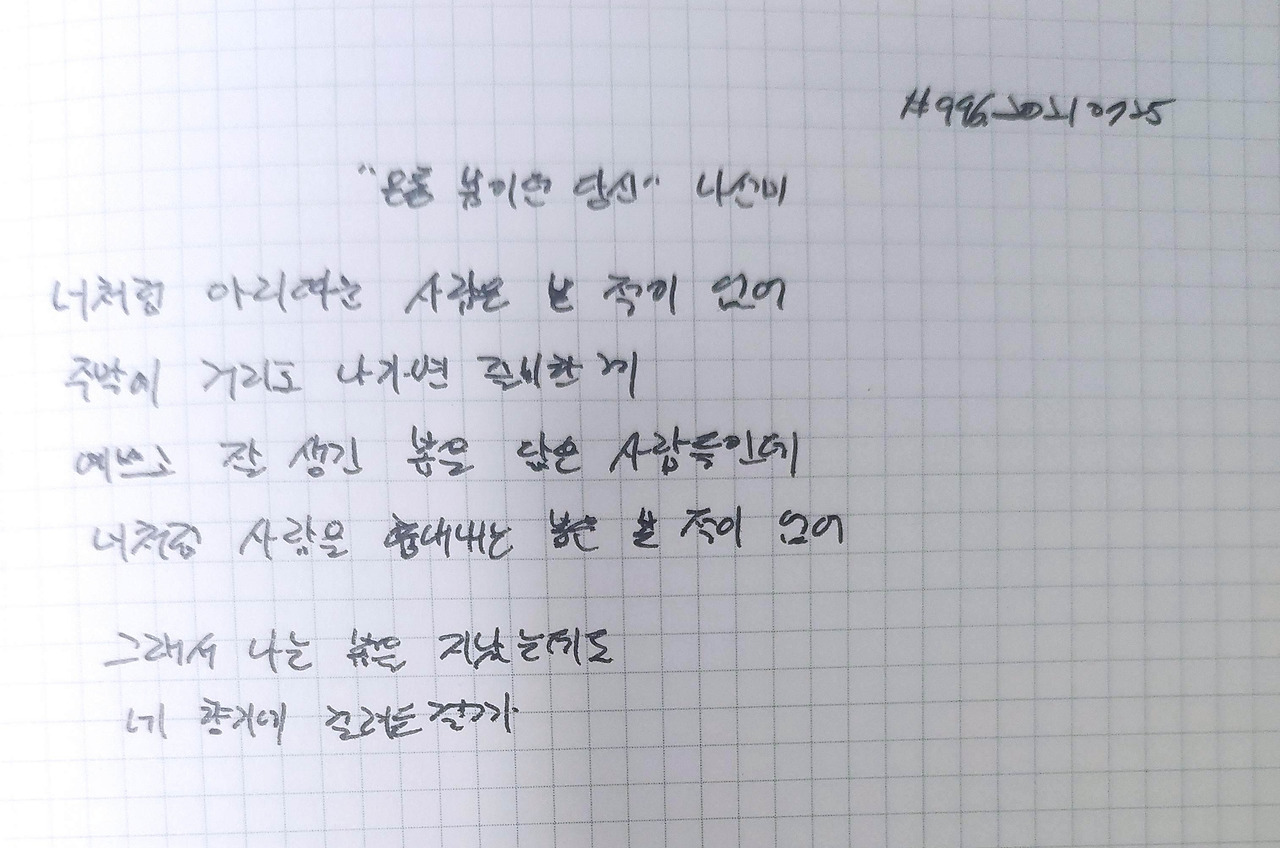 #996 20210725
"온통 봄이던 당신" 나선미
너처럼 아리따는 사람은 본 적이 없어
주막이 거리도 나가면 즐비한 게
예쁘고 잘 생긴 봄을 닮은 사람들인데
너처럼 사람을 흉내내는 봄은 본 적이 없어
그래서 나는 봄을 지났는데도
네 향기에 걸려든